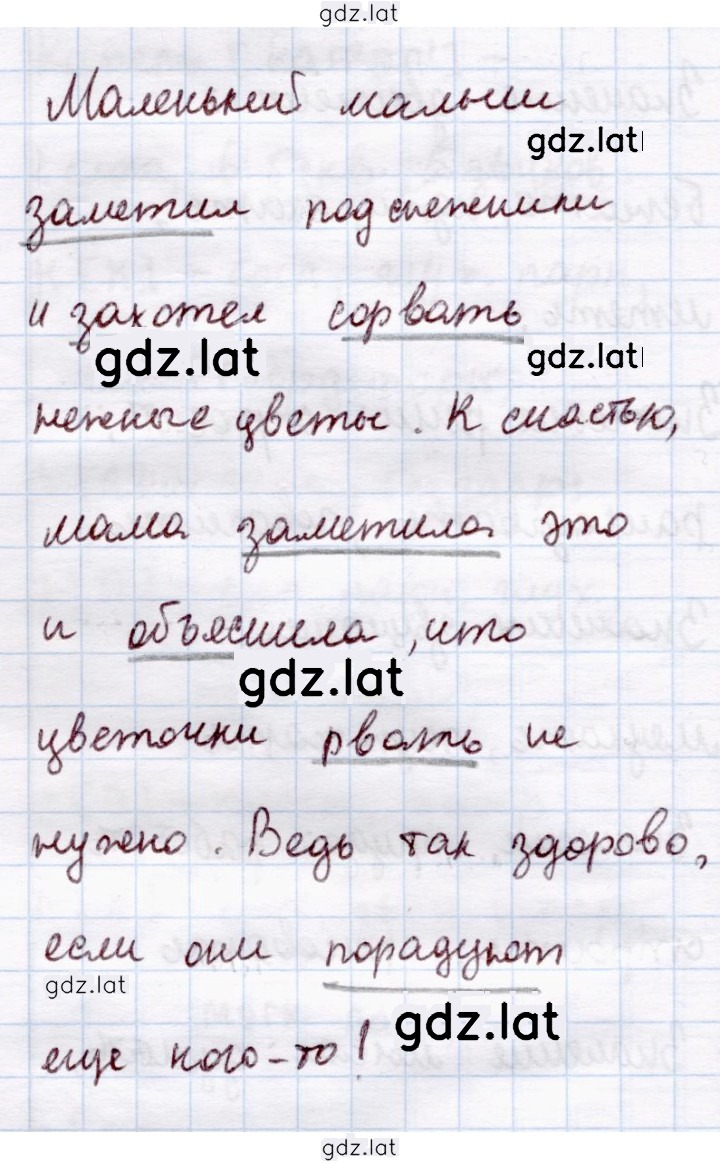 gdz.lat
Маленький малыш
gdz.lat
заметил подснежники
и захотел сорвать
gdz.lat gdz.lat
нежные цветы. К счастью,
мама заметила это
и объяснила, что
gdz.lat
цветочки рвать не
нужно. Ведь так здорово,
если они порадуют
gdz.lat
gdz.lat
еще кого-то!
gdz.lat